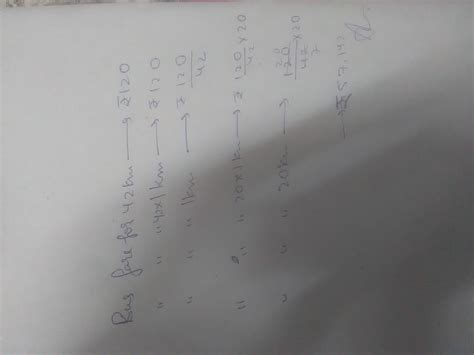 Bus fare for 42 km → ₹120
" " 42x1km → ₹120
" " 1km → ₹ 120/42
" " " 20x1km → ₹ 120 x 20/42
" " " 20km → 20 120 x 20/42 7
→ ₹57.142